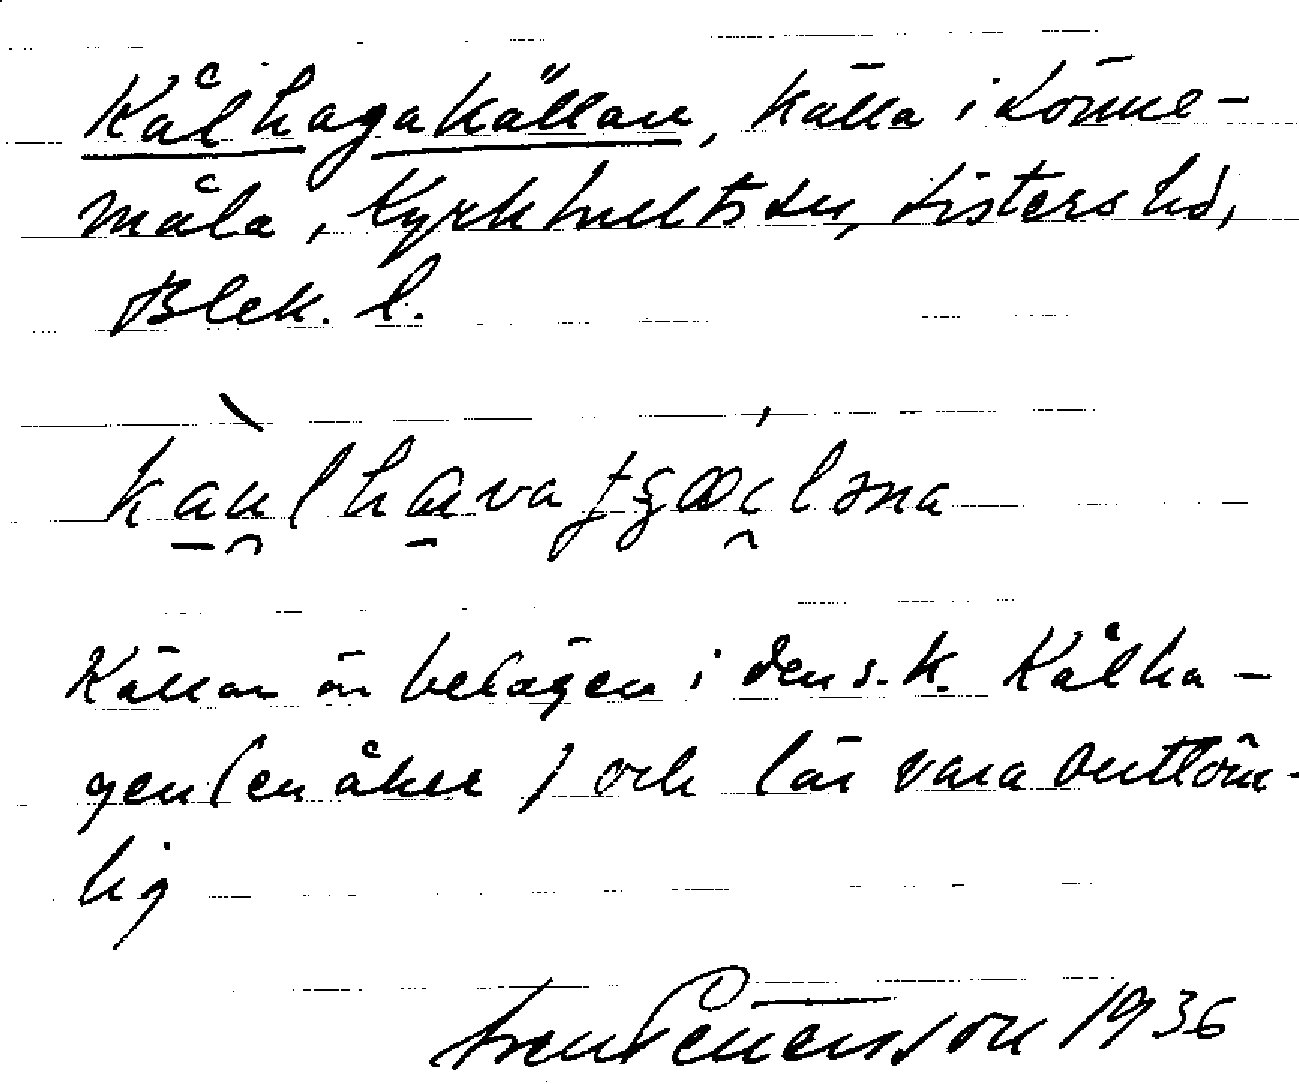 Kålhagakällan, källa i Sönne-
måla, Kyrkhults sn, Listers hd,
Blek. l.
Källan är belägen i den s.k. Kålha-
gen (en åker) och lär vara outtöm-
lig
Sven Pettersson 1936